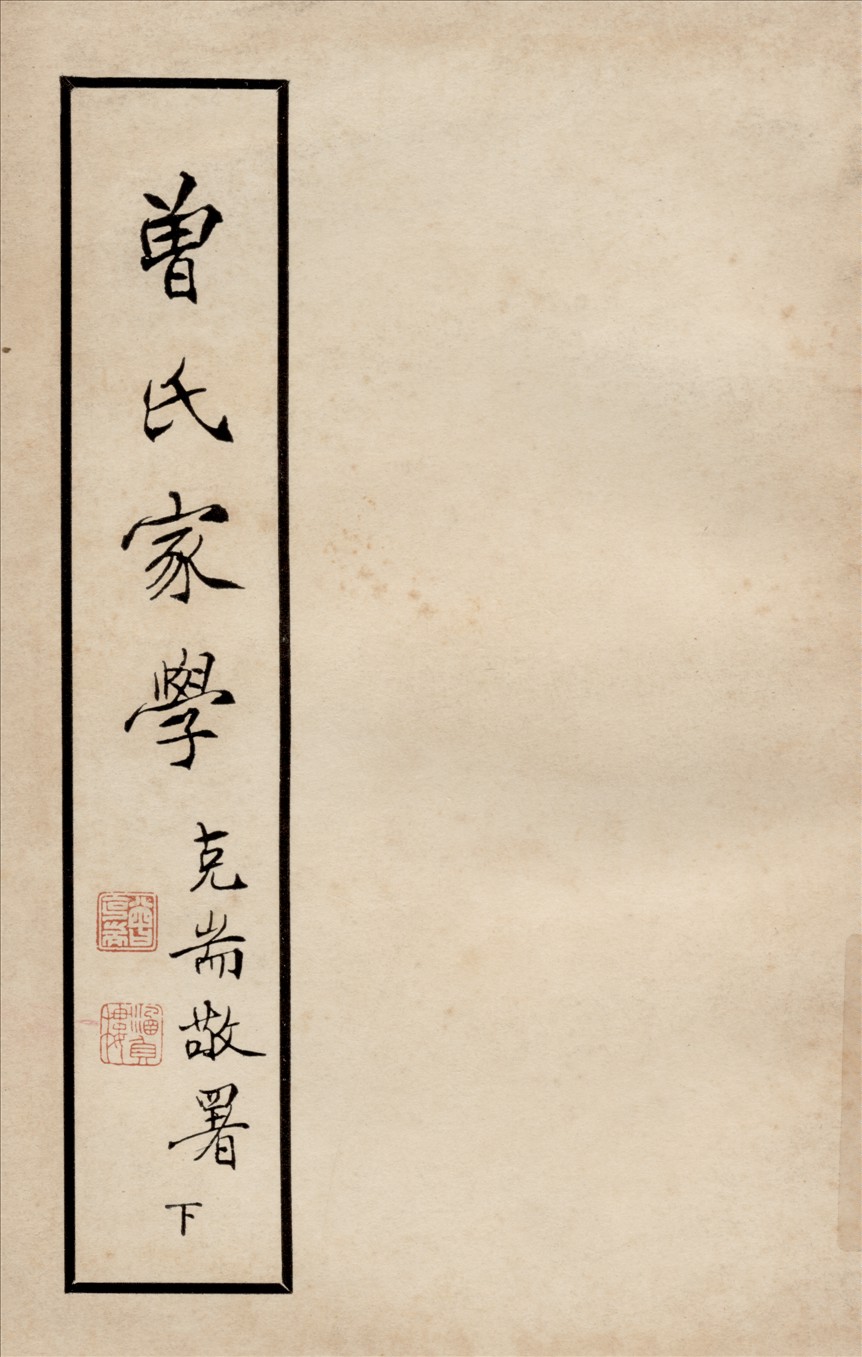 曾氏家學
克耑敬署
下